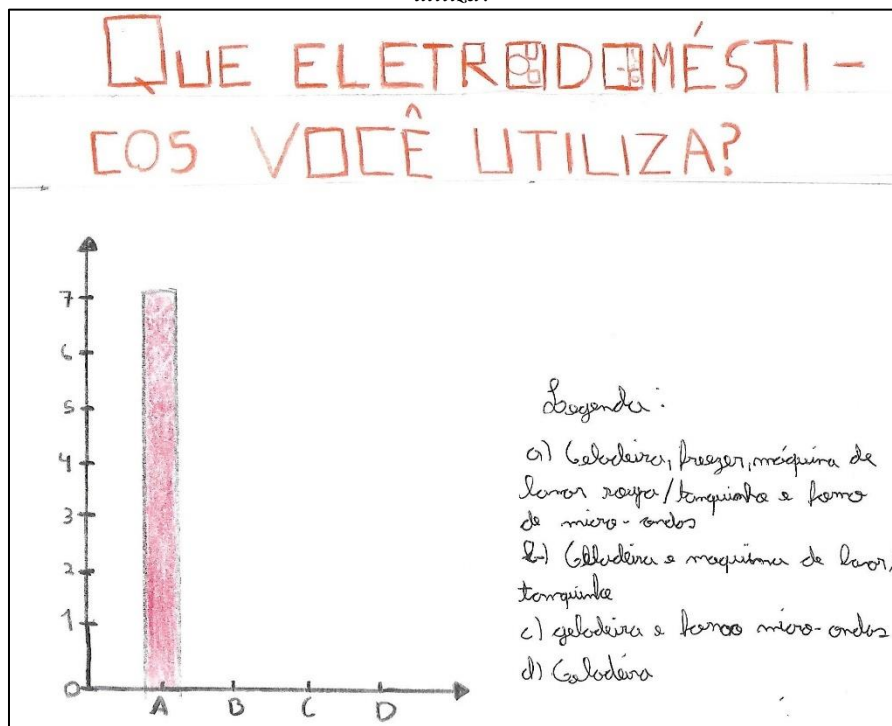 QUE ELETRODOMÉSTI-
COS VOCÊ UTILIZA?
7
6
5
4
3
2
1
0
A B C D
Legenda:
a) Geladeira, freezer, máquina de
lavar roupa/tanquinho e forno
de micro-ondas
b) Geladeira e maquina de lavar,
tanquinho
c) geladeira e forno micro-ondas
d) Geladeira